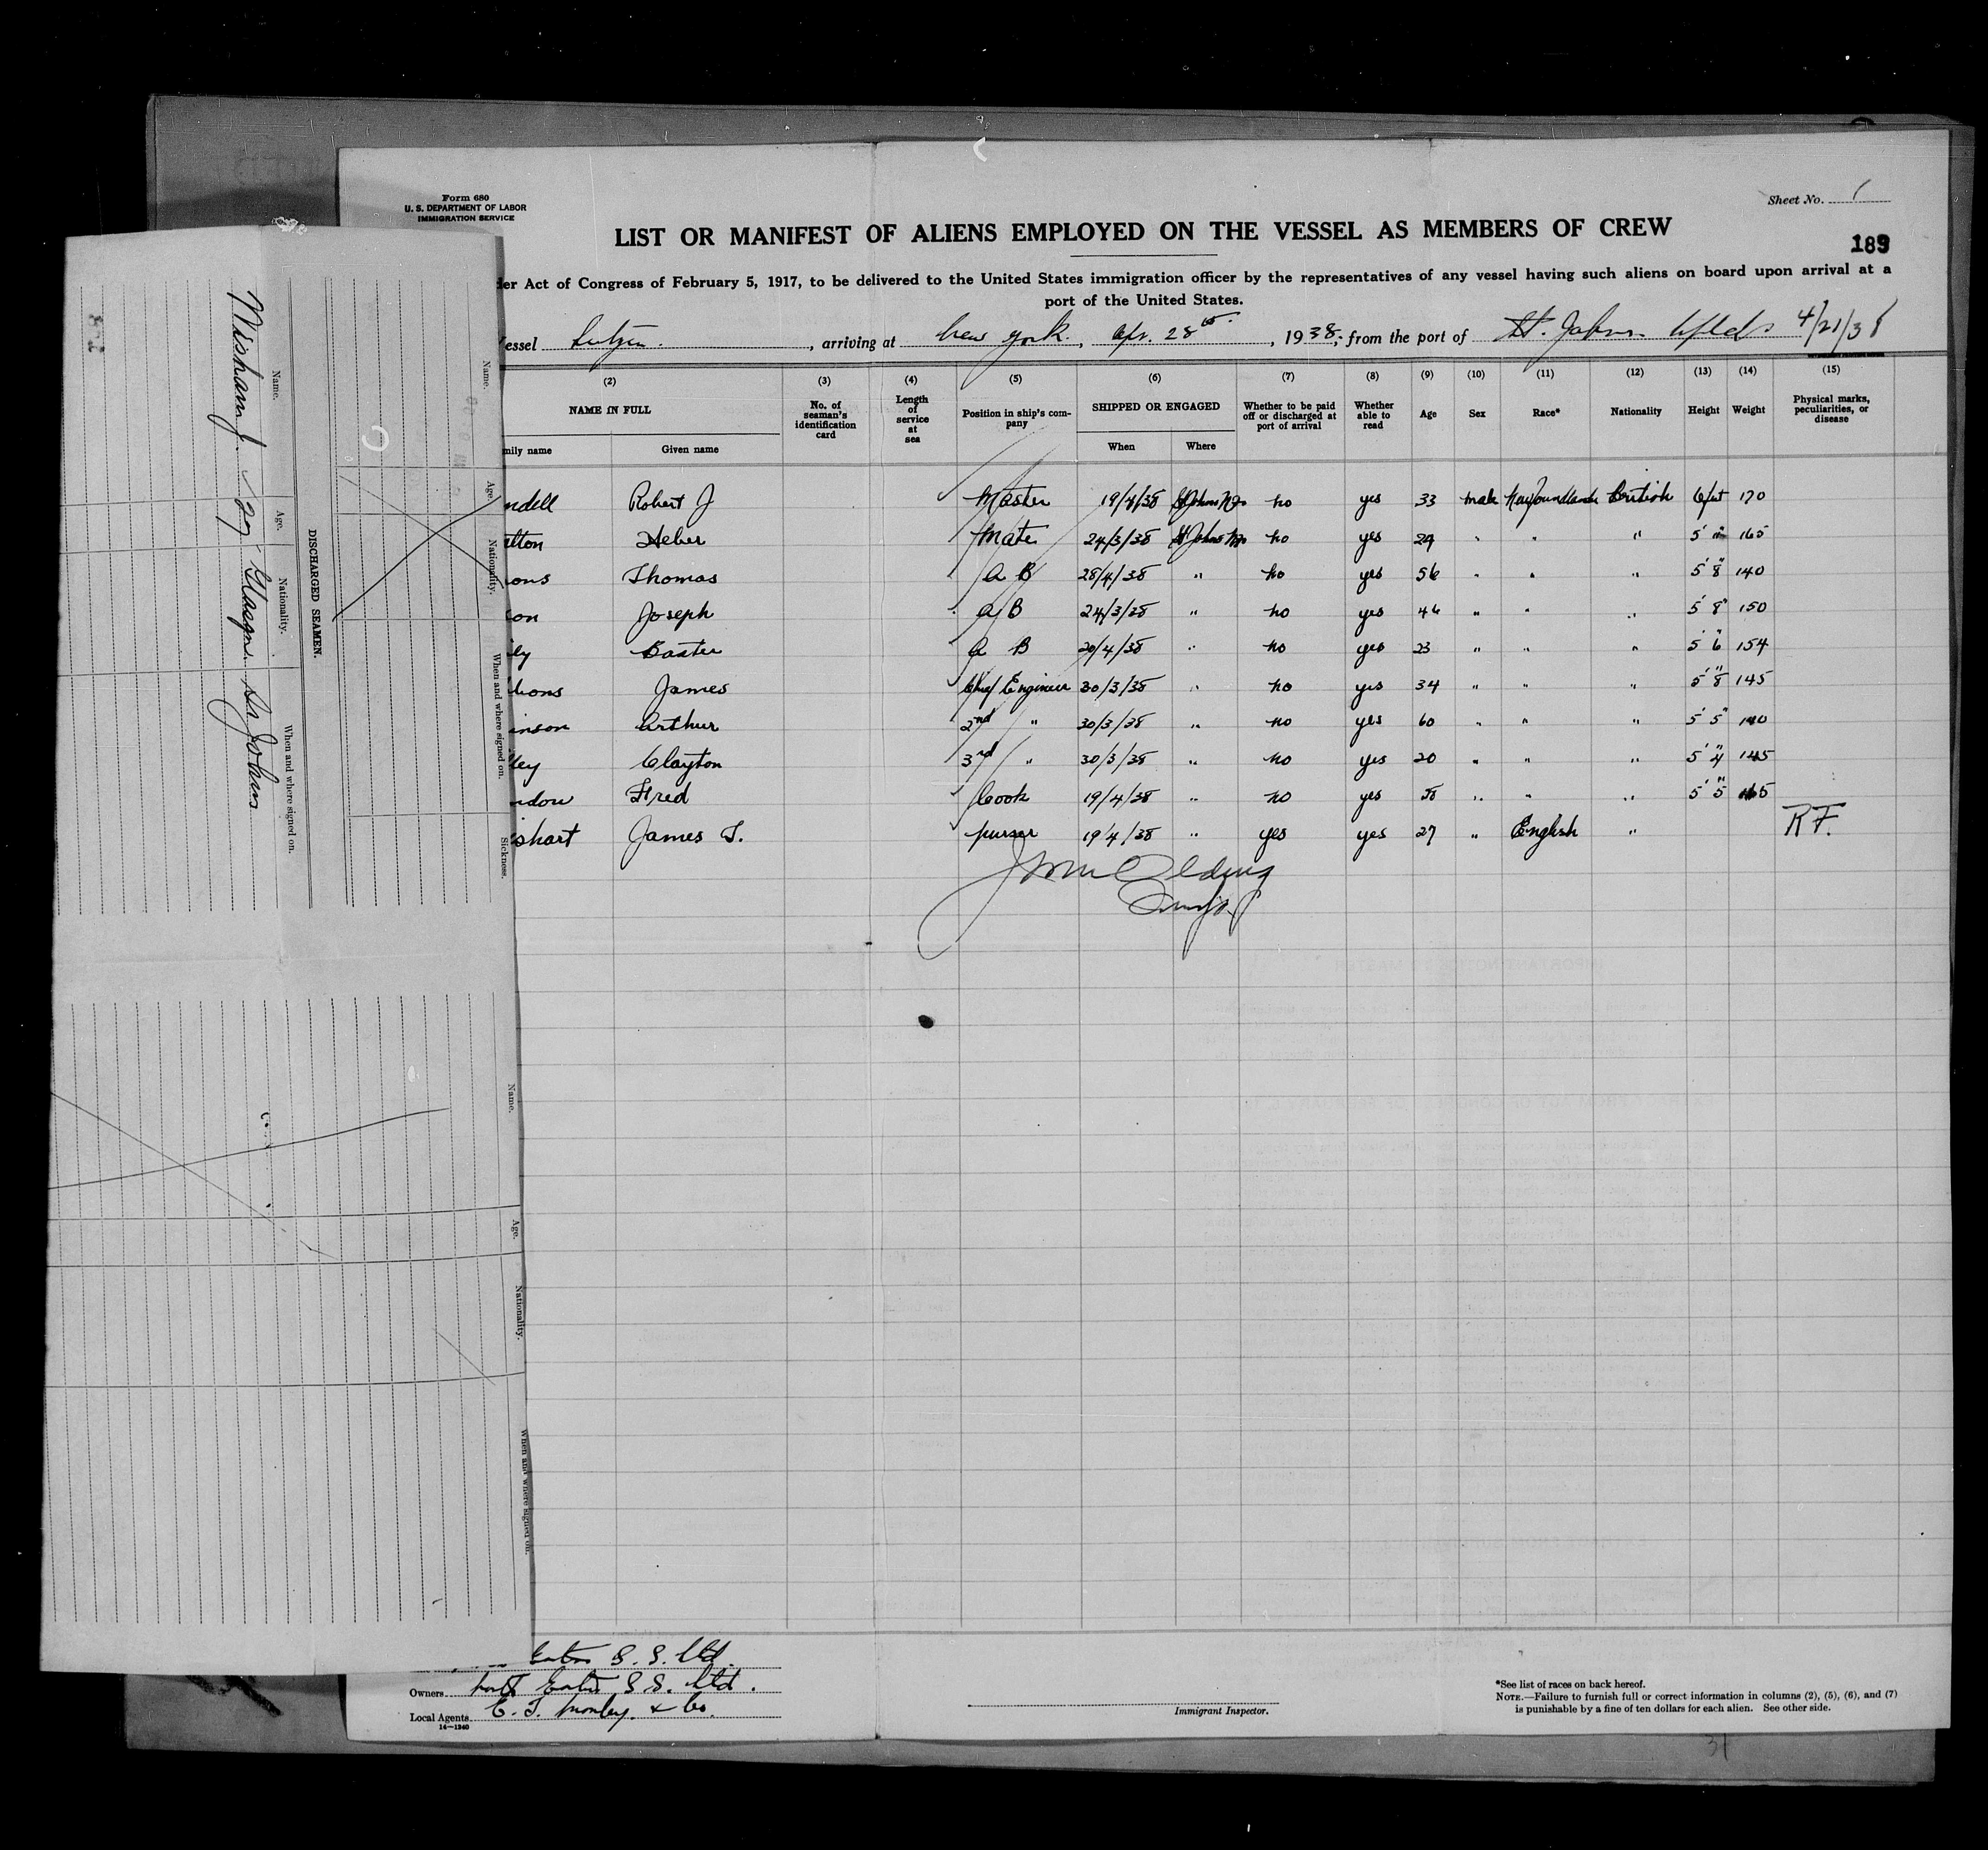 Form 680
U. S. DEPARTMENT OF LABOR
IMMIGRATION SERVICE
Sheet No. 1
LIST OR MANIFEST OF ALIENS EMPLOYED ON THE VESSEL AS MEMBERS OF CREW
189
der Act of Congress of February 5, 1917, to be delivered to the United States immigration officer by the representatives of any vessel having such aliens on board upon arrival at a
port of the United States.
essel , arriving at New York , Apr. 28 , 1938, from the port of St. Johns 4/21/38
(2) (3) (4) (5) (6) (7) (8) (9) (10) (11) (12) (13) (14) (15)
NAME IN FULL No. of seaman's identification card Length of service at sea Position in ship's company SHIPPED OR ENGAGED Whether to be paid off or discharged at port of arrival Whether able to read Age Sex Race* Nationality Height Weight Physical marks, peculiarities, or disease
mily name Given name When Where
ndell Robert J Master 19/4/38 St Johns no yes 33 male Newfoundland British 6 feet 170
lton Heber Mate 24/3/38 St Johns no yes 29 " " " 5' 165
ions Thomas A B 28/4/38 " no yes 56 " " " 5'8" 140
on Joseph A B 24/3/38 " no yes 46 " " " 5'8" 150
ly Baxter A B 20/4/38 " no yes 23 " " " 5'6" 154
bons James Chief Engineer 30/3/38 " no yes 34 " " " 5'8" 145
inson Arthur 2nd " 30/3/38 " no yes 60 " " " 5'5" 140
ley Clayton 3rd " 30/3/38 " no yes 20 " " " 5'4" 145
ndow Fred Cook 19/4/38 " no yes 58 " " " 5'5" 165
shart James T. purser 19/4/38 " yes yes 27 " English "
R F.
DISCHARGED SEAMEN.
Name. Age. Nationality. When and where signed on.
Wishart J. 27 Glasgow. St Johns
Name. Age. Nationality. When and where signed on. Sickness.
Name. Age. Nationality. When and where signed on.
S. S. Ltd.
Owners S. S. Ltd.
Local Agents & Co.
14—1240
Immigrant Inspector.
*See list of races on back hereof.
NOTE.—Failure to furnish full or correct information in columns (2), (5), (6), and (7)
is punishable by a fine of ten dollars for each alien. See other side.
31